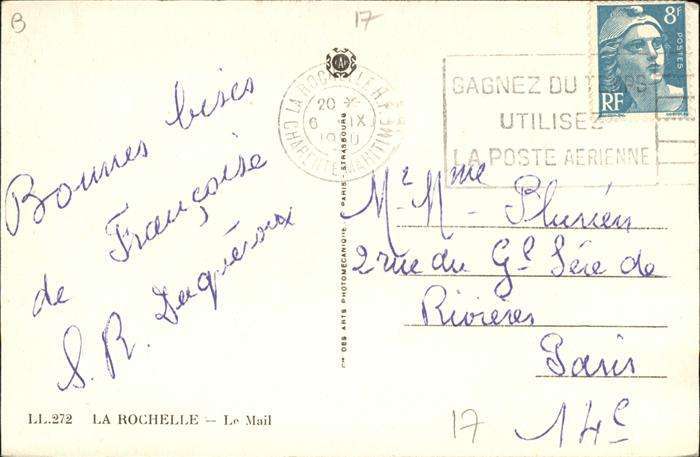 B
17
Bonnes bises
de Françoise
S. R. Duquéroux
LL.272 LA ROCHELLE — Le Mail
Cie DES ARTS PHOTOMÉCANIQUES, PARIS - STRASBOURG
LA ROCHELLE R.P.
20
6 IX
CHARENTE-MARITIME
GAGNEZ DU TEMPS
UTILISEZ
LA POSTE AERIENNE
8F
POSTES
RF
Mr Mme Pluvien
2 rue du Gl Séré de
Rivières
Paris
14e
17